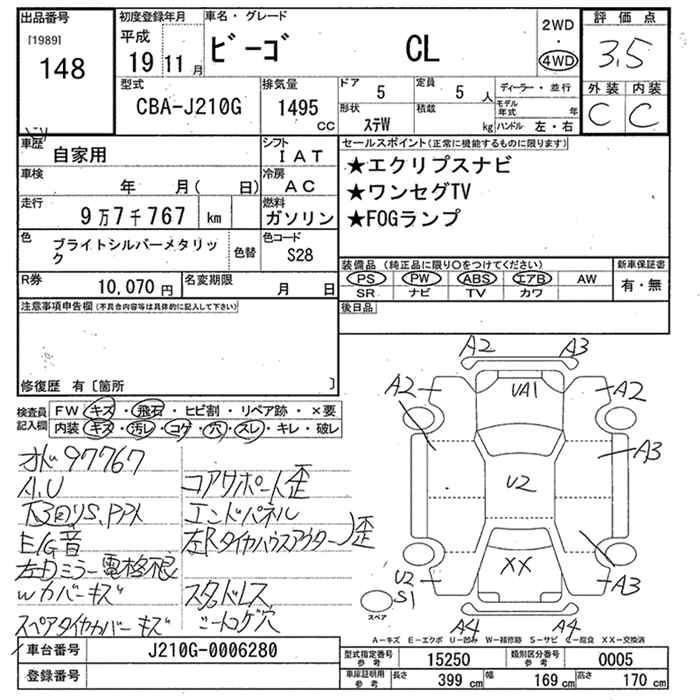 出品番号
[1989]
148
初度登録年月
平成
19 11 月
車名・グレード
ビーゴ CL
2WD
・
4WD
評価点
3.5
外装 内装
C C
型式
CBA-J210G
排気量
1495
CC
ドア 5
定員 5 人
形状 ステW
積載 kg
ディーラー・並行
モデル年式 年
ハンドル 左・右
車歴
自家用
シフト
IAT
車検
年 月( 日)
冷房
AC
走行
9万7千767 km
燃料
ガソリン
色
ブライトシルバーメタリック
色替
色コード
S28
R券
10,070 円
名変期限
月 日
セールスポイント(正常に機能するものに限ります)
★エクリプスナビ
★ワンセグTV
★FOGランプ
装備品 (純正品に限り〇をつけてください)
PS PW ABS エアB AW
SR ナビ TV カワ
新車保証書
有・無
後日品
注意事項申告欄(不具合内容等は具体的に記入して下さい)
修復歴 有〔箇所 〕
検査員記入欄
FW キズ・飛石・ヒビ割・リペア跡・×要
内装 キズ・汚レ・コゲ・穴・スレ・キレ・破レ
オド 97767
A.U
コアサポート歪
エンドパネル
E/G音
左Rタイヤハウスアウター)歪
左Dミラー電格不良
Wカバーキズ
スタッドレス
スペアタイヤカバーキズ
シートコゲ穴
A2 A3
A2 UA1 A2
A3
U2
XX
U2
S1
A3
A4 A4
スペア
A-キズ E-エクボ U-凹み W-補修跡 S-サビ C-腐食 XX-交換済
車台番号 J210G-0006280
登録番号
型式指定番号 参考 15250
類別区分番号 参考 0005
車庫証明用 参考 長さ 399 cm 幅 169 cm 高さ 170 cm